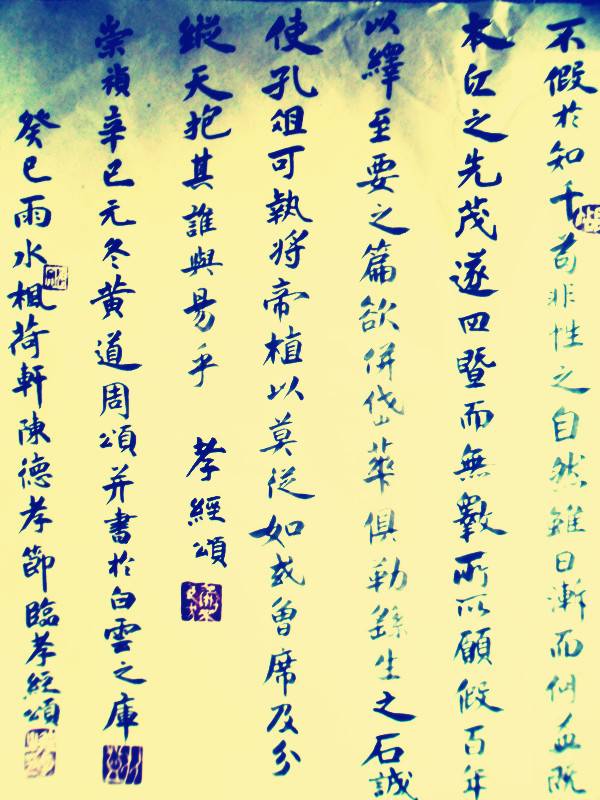 不假於知千苟非性之自然雖日漸而何益既
本江之先茂遂四暨而無斁所以願假百年
以繹至要之篇欲併岱華俱勒鎔生之石誠
使孔俎可執將帝植以莫從如或魯席及分
縱天抱其誰與易乎 孝經頌
崇禎辛巳元冬黃道周頌并書於白雲之庫
癸巳雨水楓荷軒陳德孝節臨孝經頌